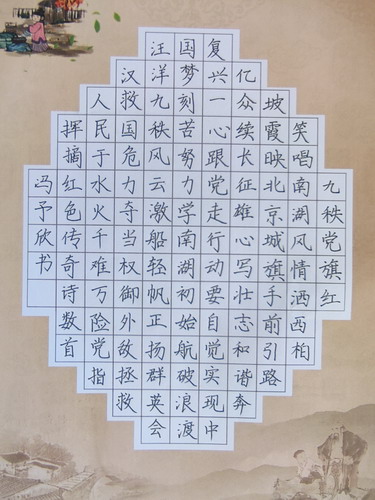 九秩党旗红
笑唱南湖风情洒西柏
坡霞映北京城旗手前引路
亿众续长征雄心写壮志和谐奔
复兴一心跟党走行动要自觉实现中
国梦刻苦努力学南湖初始航破浪渡
汪洋九秩风云激船轻帆正扬群英会
汉救国危力夺当权御外敌拯救
人民于水火千难万险党指
挥摘红色传奇诗数首
冯予欣书